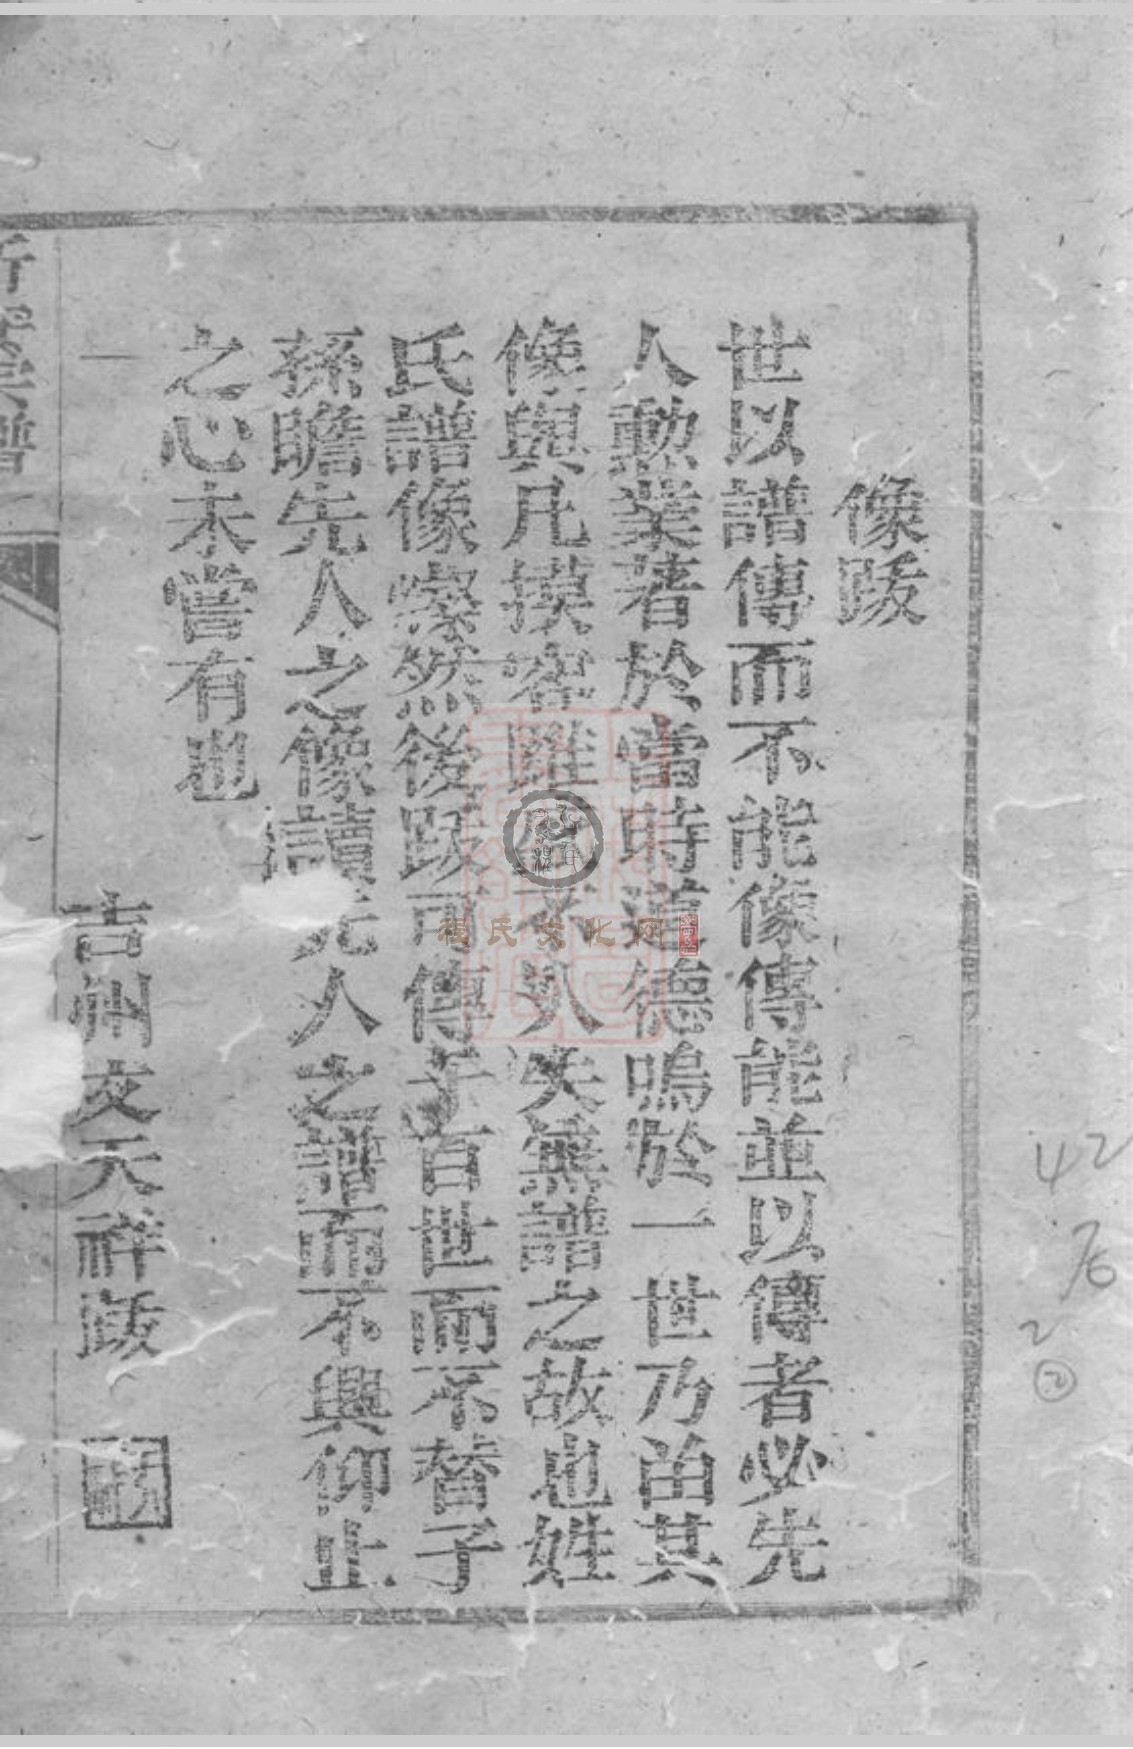 像跋
世以譜傳而不能像傳能並以傳者必先
人勳業著於當時道德鳴於一世乃沿其
像與凡摸容雖 人失無譜之故也姓
氏譜像燦然後跋可傳于百世而不替子
孫瞻先人之像讀先人之譜而不興仰止
之心未嘗有也
吉州文天祥跋
程氏文化网
42
76
2
②